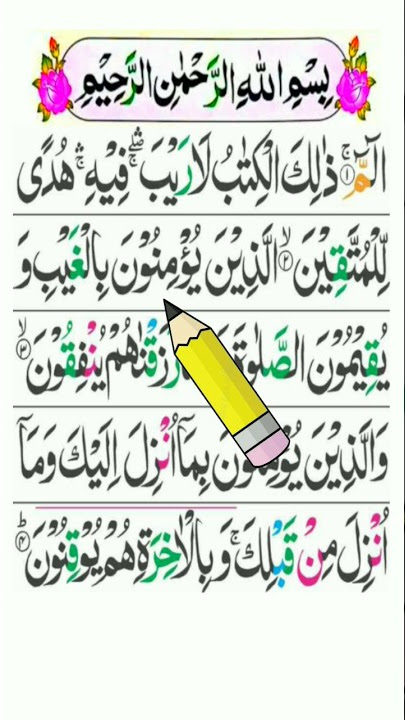 بِسْمِ اللهِ الرَّحْمٰنِ الرَّحِيْمِ
الٓمّٓ ۚ ﴿۱﴾ ذٰلِكَ الْكِتٰبُ لَا رَيْبَ ۛۖ فِيْهِ ۛۚ هُدًى
لِّلْمُتَّقِيْنَ ۙ ﴿۲﴾ الَّذِيْنَ يُؤْمِنُوْنَ بِالْغَيْبِ وَ
يُقِيْمُوْنَ الصَّلٰوةَ رَزَقْنٰهُمْ يُنْفِقُوْنَ ۙ ﴿۳﴾
وَالَّذِيْنَ يُؤْمِنُوْنَ بِمَآ اُنْزِلَ اِلَيْكَ وَمَآ
اُنْزِلَ مِنْ قَبْلِكَ ۚ وَ بِالْاٰخِرَةِ هُمْ يُوْقِنُوْنَ ؕ ﴿۴﴾